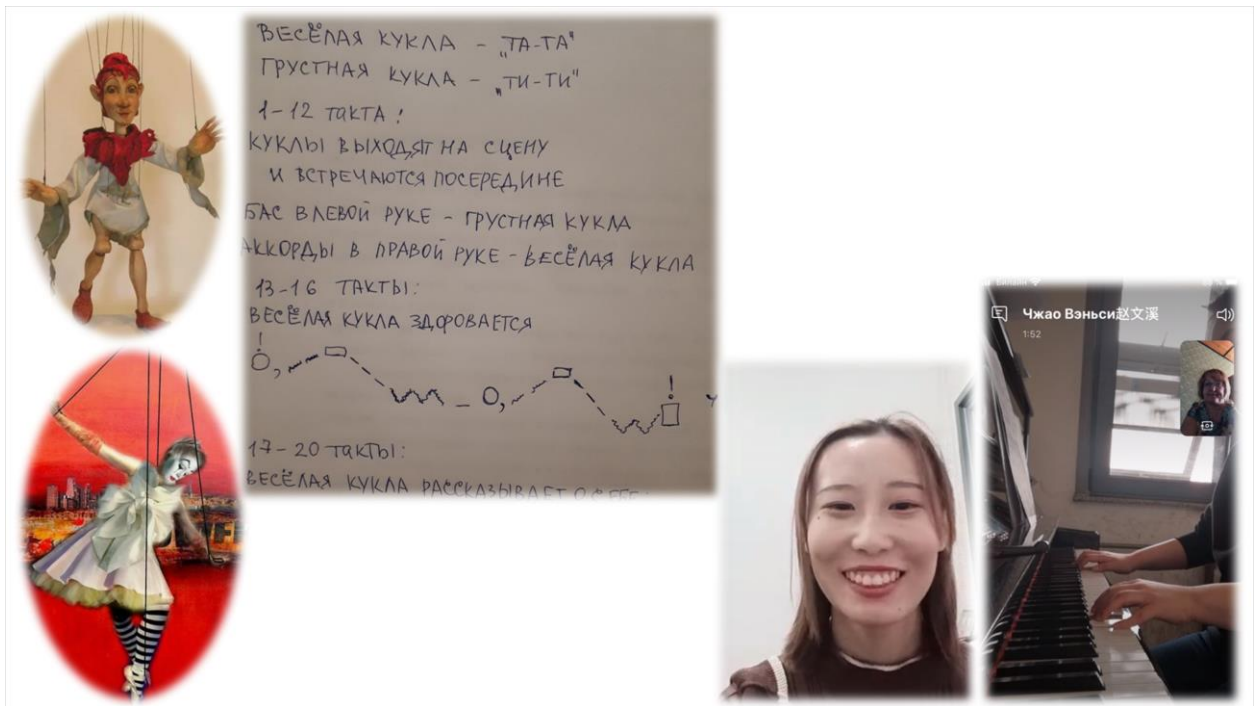 ВЕСЁЛАЯ КУКЛА – „ТА-ТА"
ГРУСТНАЯ КУКЛА – „ТИ-ТИ"
1-12 ТАКТА:
КУКЛЫ ВЫХОДЯТ НА СЦЕНУ
И ВСТРЕЧАЮТСЯ ПОСЕРЕДИНЕ
БАС В ЛЕВОЙ РУКЕ – ГРУСТНАЯ КУКЛА
АККОРДЫ В ПРАВОЙ РУКЕ – ВЕСЁЛАЯ КУКЛА
13-16 ТАКТЫ:
ВЕСЁЛАЯ КУКЛА ЗДОРОВАЕТСЯ
17-20 ТАКТЫ:
ВЕСЁЛАЯ КУКЛА РАССКАЗЫВАЕТ О СЕБЕ
Чжао Вэньси赵文溪
1:52